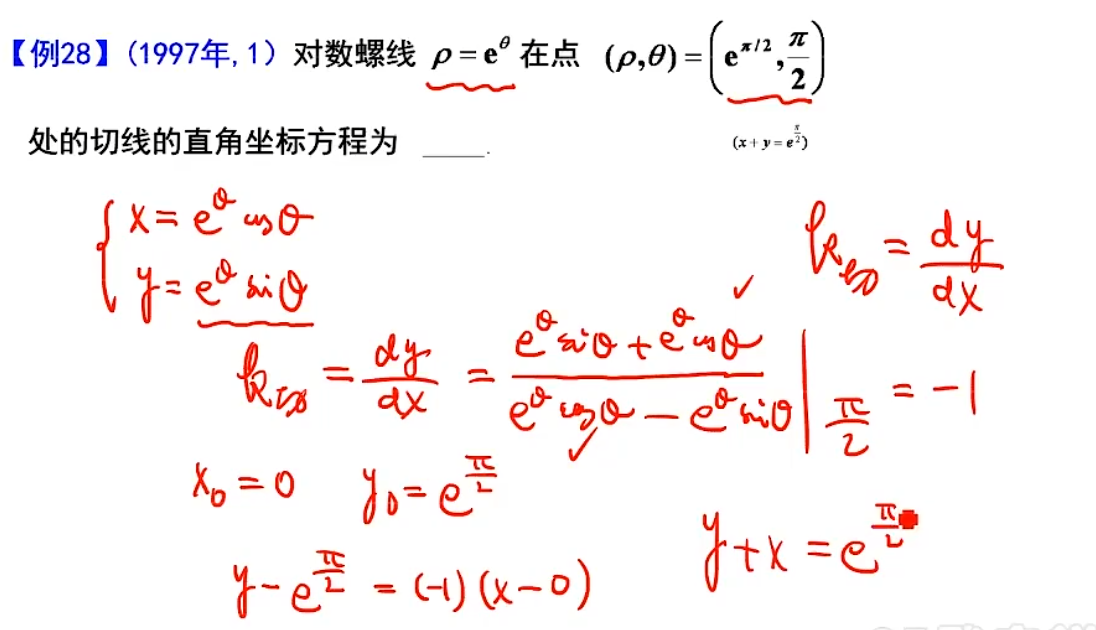 【例28】(1997年,1) 对数螺线 ρ = e^θ 在点 (ρ,θ) = (e^{π/2}, π/2)
处的切线的直角坐标方程为 ____.
(x + y = e^{π/2})
{ x = e^θ cosθ
y = e^θ sinθ
k切 = dy/dx
k切 = dy/dx = (e^θ sinθ + e^θ cosθ)/(e^θ cosθ − e^θ sinθ) |_{π/2} = −1
x₀ = 0 y₀ = e^{π/2}
y − e^{π/2} = (−1)(x − 0)
y + x = e^{π/2}